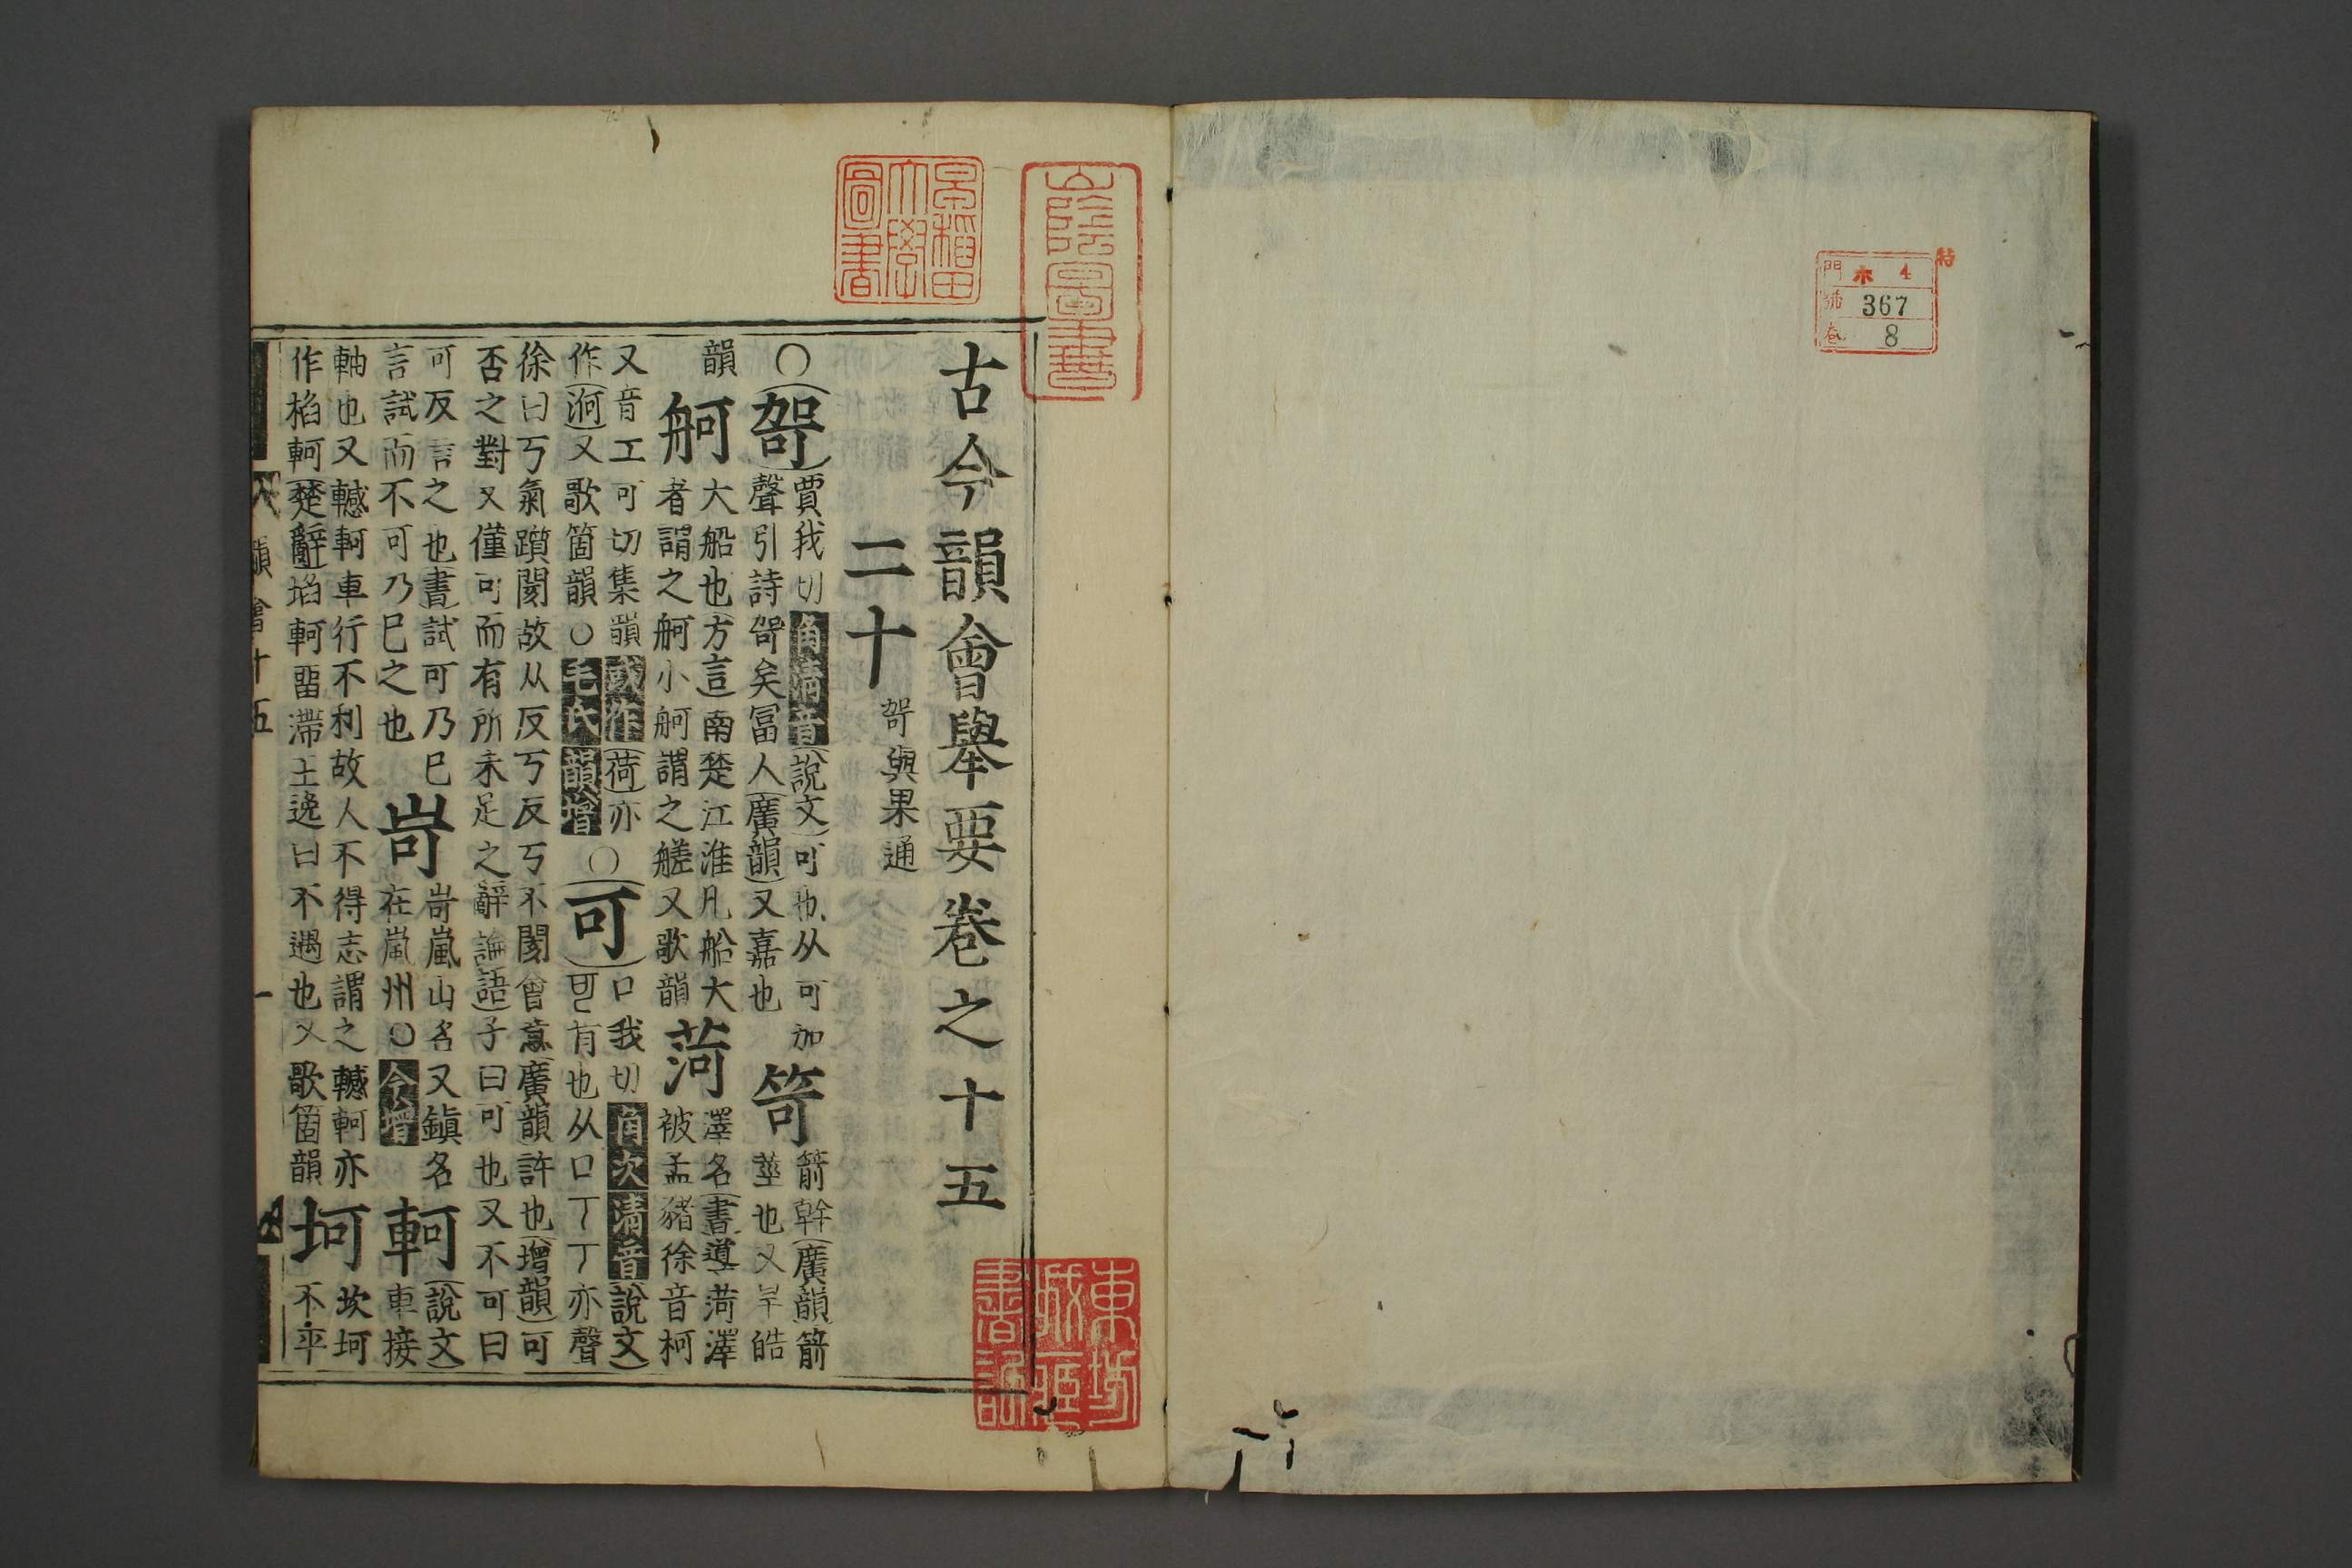 特
門 ホ 4
號 367
卷 8
早稻田大學圖書
古今韻會舉要卷之十五
二十 哿與果通
○哿 賈我切角清音說文可也从可加
聲引詩哿矣冨人廣韻又嘉也 笴 箭幹廣韻箭
莖也又旱皓
韻 舸 大船也方言南楚江淮凡船大
者謂之舸小舸謂之艖又歌韻 菏 澤名書導菏澤
被孟豬徐音柯
又音工可切集韻或作荷亦
作渮又歌箇韻○毛氏韻增 ○可 口我切角次清音說文
有也从口丁丁亦聲
徐曰丂氣躓閡故从反丂反丂不閡會意廣韻許也增韻可
否之對又僅可而有所未足之辭論語子曰可也又不可曰
可反言之也書試可乃巳
言試而不可乃巳之也 岢 岢嵐山名又鎮名
在嵐州○今增 軻 說文
車接
軸也又轗軻車行不利故人不得志謂之轗軻亦
作軻楚辭埳軻畱滯王逸曰不遇也又歌箇韻 坷 坎坷
不平
韻會十五
一